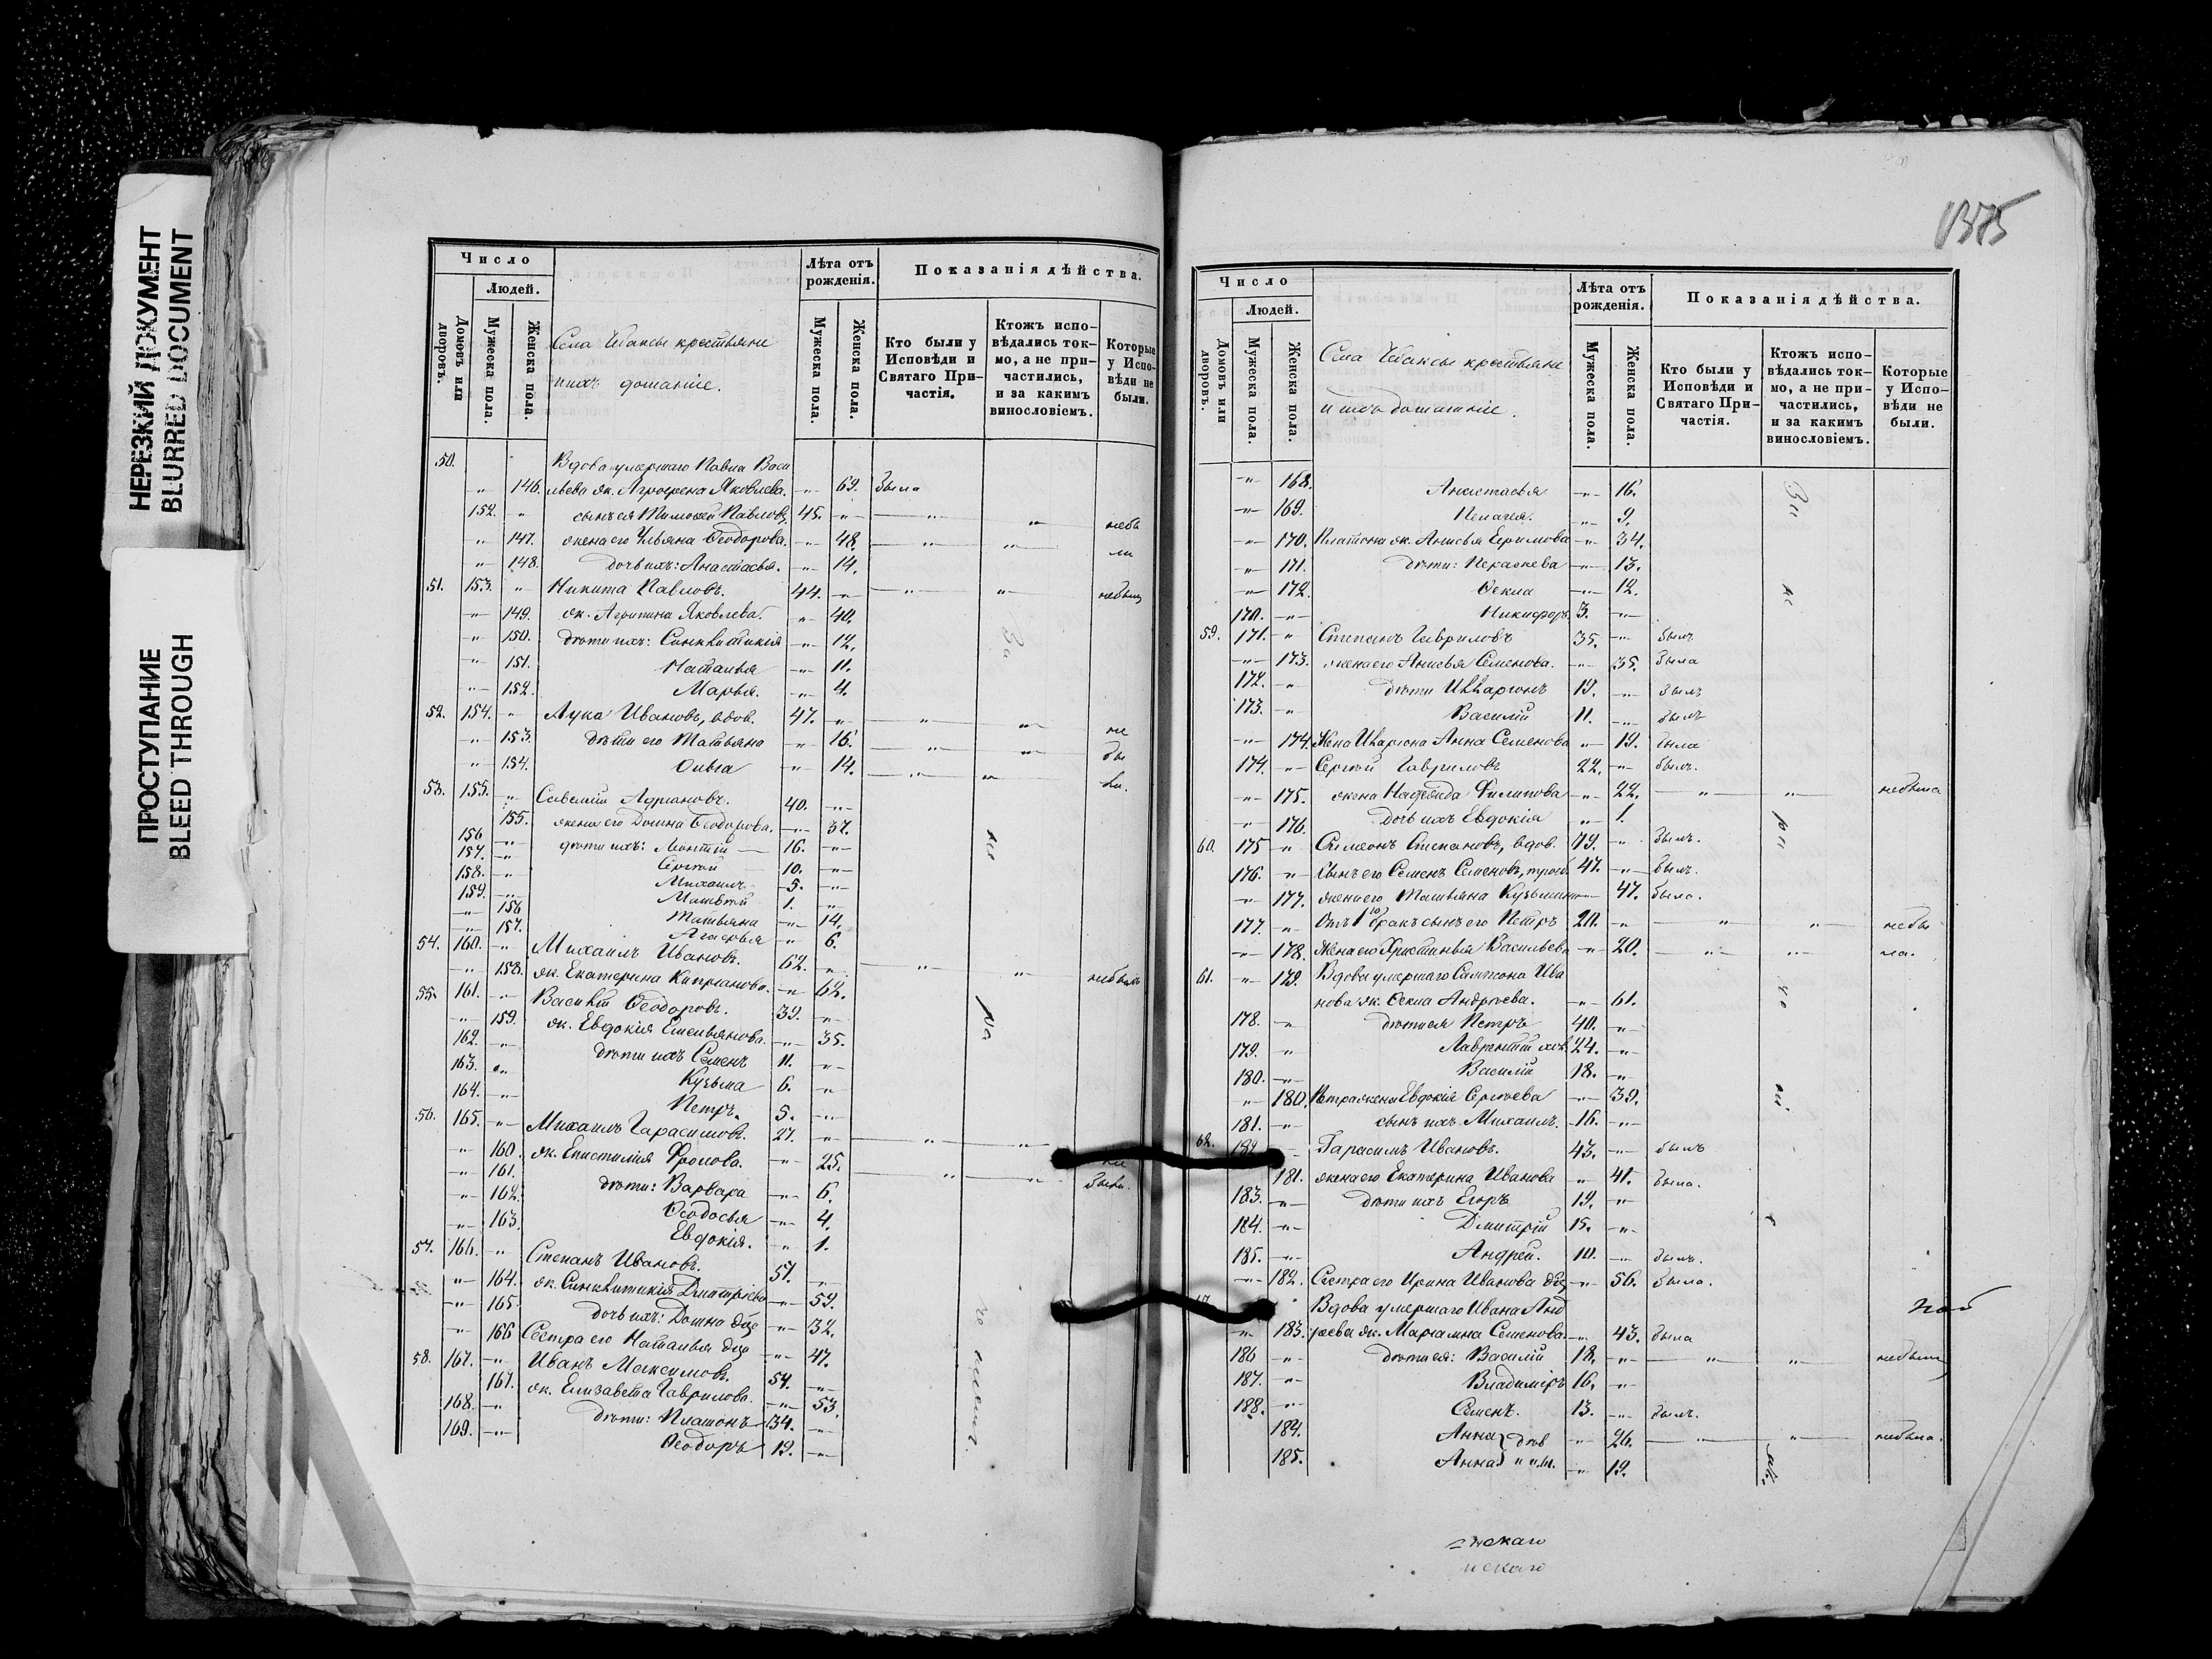 НЕРЕЗКИЙ ДОКУМЕНТ
BLURRED DOCUMENT
ПРОСТУПАНИЕ
BLEED THROUGH
Число
Людей.
Домовъ или дворовъ.
Мужеска пола.
Женска пола.
Села крестьяне
и ихъ домашніе.
Лѣта отъ рожденія.
Мужеска пола.
Женска пола.
Показанія дѣйства.
Кто были у Исповѣди и Святаго Причастія.
Ктожъ исповѣдались токмо, а не причастились, и за какимъ винословіемъ.
Которые у Исповѣди не были.
50. Вдова умершаго Павла Васи
" 146. льева ж. Агрофена Яковлева. " 69. была
152. " сынъ ея Тимоѳей Павловъ, 45. " " " небы
" 147. жена его Ульяна Ѳеодорова. " 48. " " ли
" 148. дочь ихъ: Анастасья. " 14.
51. 153. " Никита Павловъ. 44. " " " небыли
" 149. ж. Агрипина Яковлева. " 40.
" 150. дѣти ихъ: Синклитикія " 12.
" 151. Наталья " 11.
" 152. Марья. " 4.
52. 154. " Лука Ивановъ, вдов. 47. " " " не
" 153. дѣти его Татьяна " 16. " " бы
" 154. Ольга " 14. " " ли.
53. 155. " Савелій Адріановъ. 40. "
155. жена его Домна Ѳеодорова. " 37.
156 " дѣти ихъ: Леонтій 16. "
157. " Сергѣй 10. "
158. " Михаилъ 5. "
159. " Матвѣй 1. "
" 156 Татьяна " 14.
" 157. Агафья " 6.
54. 160. " Михаилъ Ивановъ. 62. " " " небыли
" 158. ж. Екатерина Капріанова. " 62.
55. 161. " Василій Ѳеодоровъ. 39. "
" 159. ж. Евдокія Емельянова. " 35.
162. " дѣти ихъ Семенъ 11. "
163. " Кузьма 6. "
164. " Петръ. 5. "
56. 165. " Михаилъ Гарасимовъ. 27. " " " не
" 160. ж. Епистимія Фролова. " 25. " " были.
" 161. дѣти: Варвара " 6.
" 162. Ѳеодосья " 4.
" 163. Евдокія. " 1.
57. 166. " Степанъ Ивановъ. 57. "
" 164. ж. Синклитикія Дмитріева " 59.
" 165. дочь ихъ: Домна двц " 32.
" 166 Сестра его Наталья двц " 47.
58. 167. " Иванъ Максимовъ. 54. "
167. ж. Елизавета Гаврилова. " 53.
168. " дѣти: Платонъ 34. "
169. " Ѳеодоръ 19. "
За
1375
Число
Людей.
Домовъ или дворовъ.
Мужеска пола.
Женска пола.
Села крестьяне
и ихъ домашніе.
Лѣта отъ рожденія.
Мужеска пола.
Женска пола.
Показанія дѣйства.
Кто были у Исповѣди и Святаго Причастія.
Ктожъ исповѣдались токмо, а не причастились, и за какимъ винословіемъ.
Которые у Исповѣди не были.
" 168. Анастасья " 16.
" 169. Пелагея. " 9.
" 170. Платона ж. Анисья Ефимова " 34.
" 171. дѣти: Пекаскева " 13.
" 172. Ѳекла " 12.
170. " Никифоръ 3. "
59. 171. " Степанъ Гавриловъ 35. " былъ
" 173. жена его Анисья Семенова. " 35. была
172. " дѣти Иларіонъ 19. " былъ
173. " Василій 11. " былъ
" 174. Жена Иларіона Анна Семенова " 19. была
174. " Сергѣй Гавриловъ 22. " былъ.
" 175. жена Надежда Филипова " 22. " " небыла
" 176. дочь ихъ Евдокія " 1.
60. 175 " Симеонъ Степановъ, вдов. 79. " былъ.
176. " Сынъ его Семенъ Семеновъ, 47. " былъ.
" 177. жена его Татьяна Кузьмина 47. была.
177. " Отъ 1го бракъ сынъ его Петръ 20. " " " небы
" 178. Жена его Христинья Васильева " 20. " " ла.
61. " 179. Вдова умершаго Сампсона Ива
нова ж. Ѳекла Андрѣева. " 61.
178. " дѣти ея Петръ 40. "
179. " Лаврентій хол. 24. "
180. " Василій 18. "
" 180. Петра жена Евдокія Сергѣева " 39.
181. " сынъ ихъ Михаилъ. 16. "
62. 182 " Гарасимъ Ивановъ. 43. " былъ
181. жена его Екатерина Иванова " 41. была.
183. " дѣти ихъ Егоръ 19. "
184. " Дмитрій 15. "
185. " Андрей. 10. " былъ.
" 182. Сестра его Ирина Иванова двц " 56. была.
Вдова умершаго Ивана Анд
" 183. рѣева ж. Маріамна Семенова. " 43. была
186 " дѣти ея: Василій 18. " " " небыли
187. " Владиміръ 16. "
188. " Семенъ. 13. " былъ.
184. Анна " 26. " " небыла.
185. Анна " 19.
За